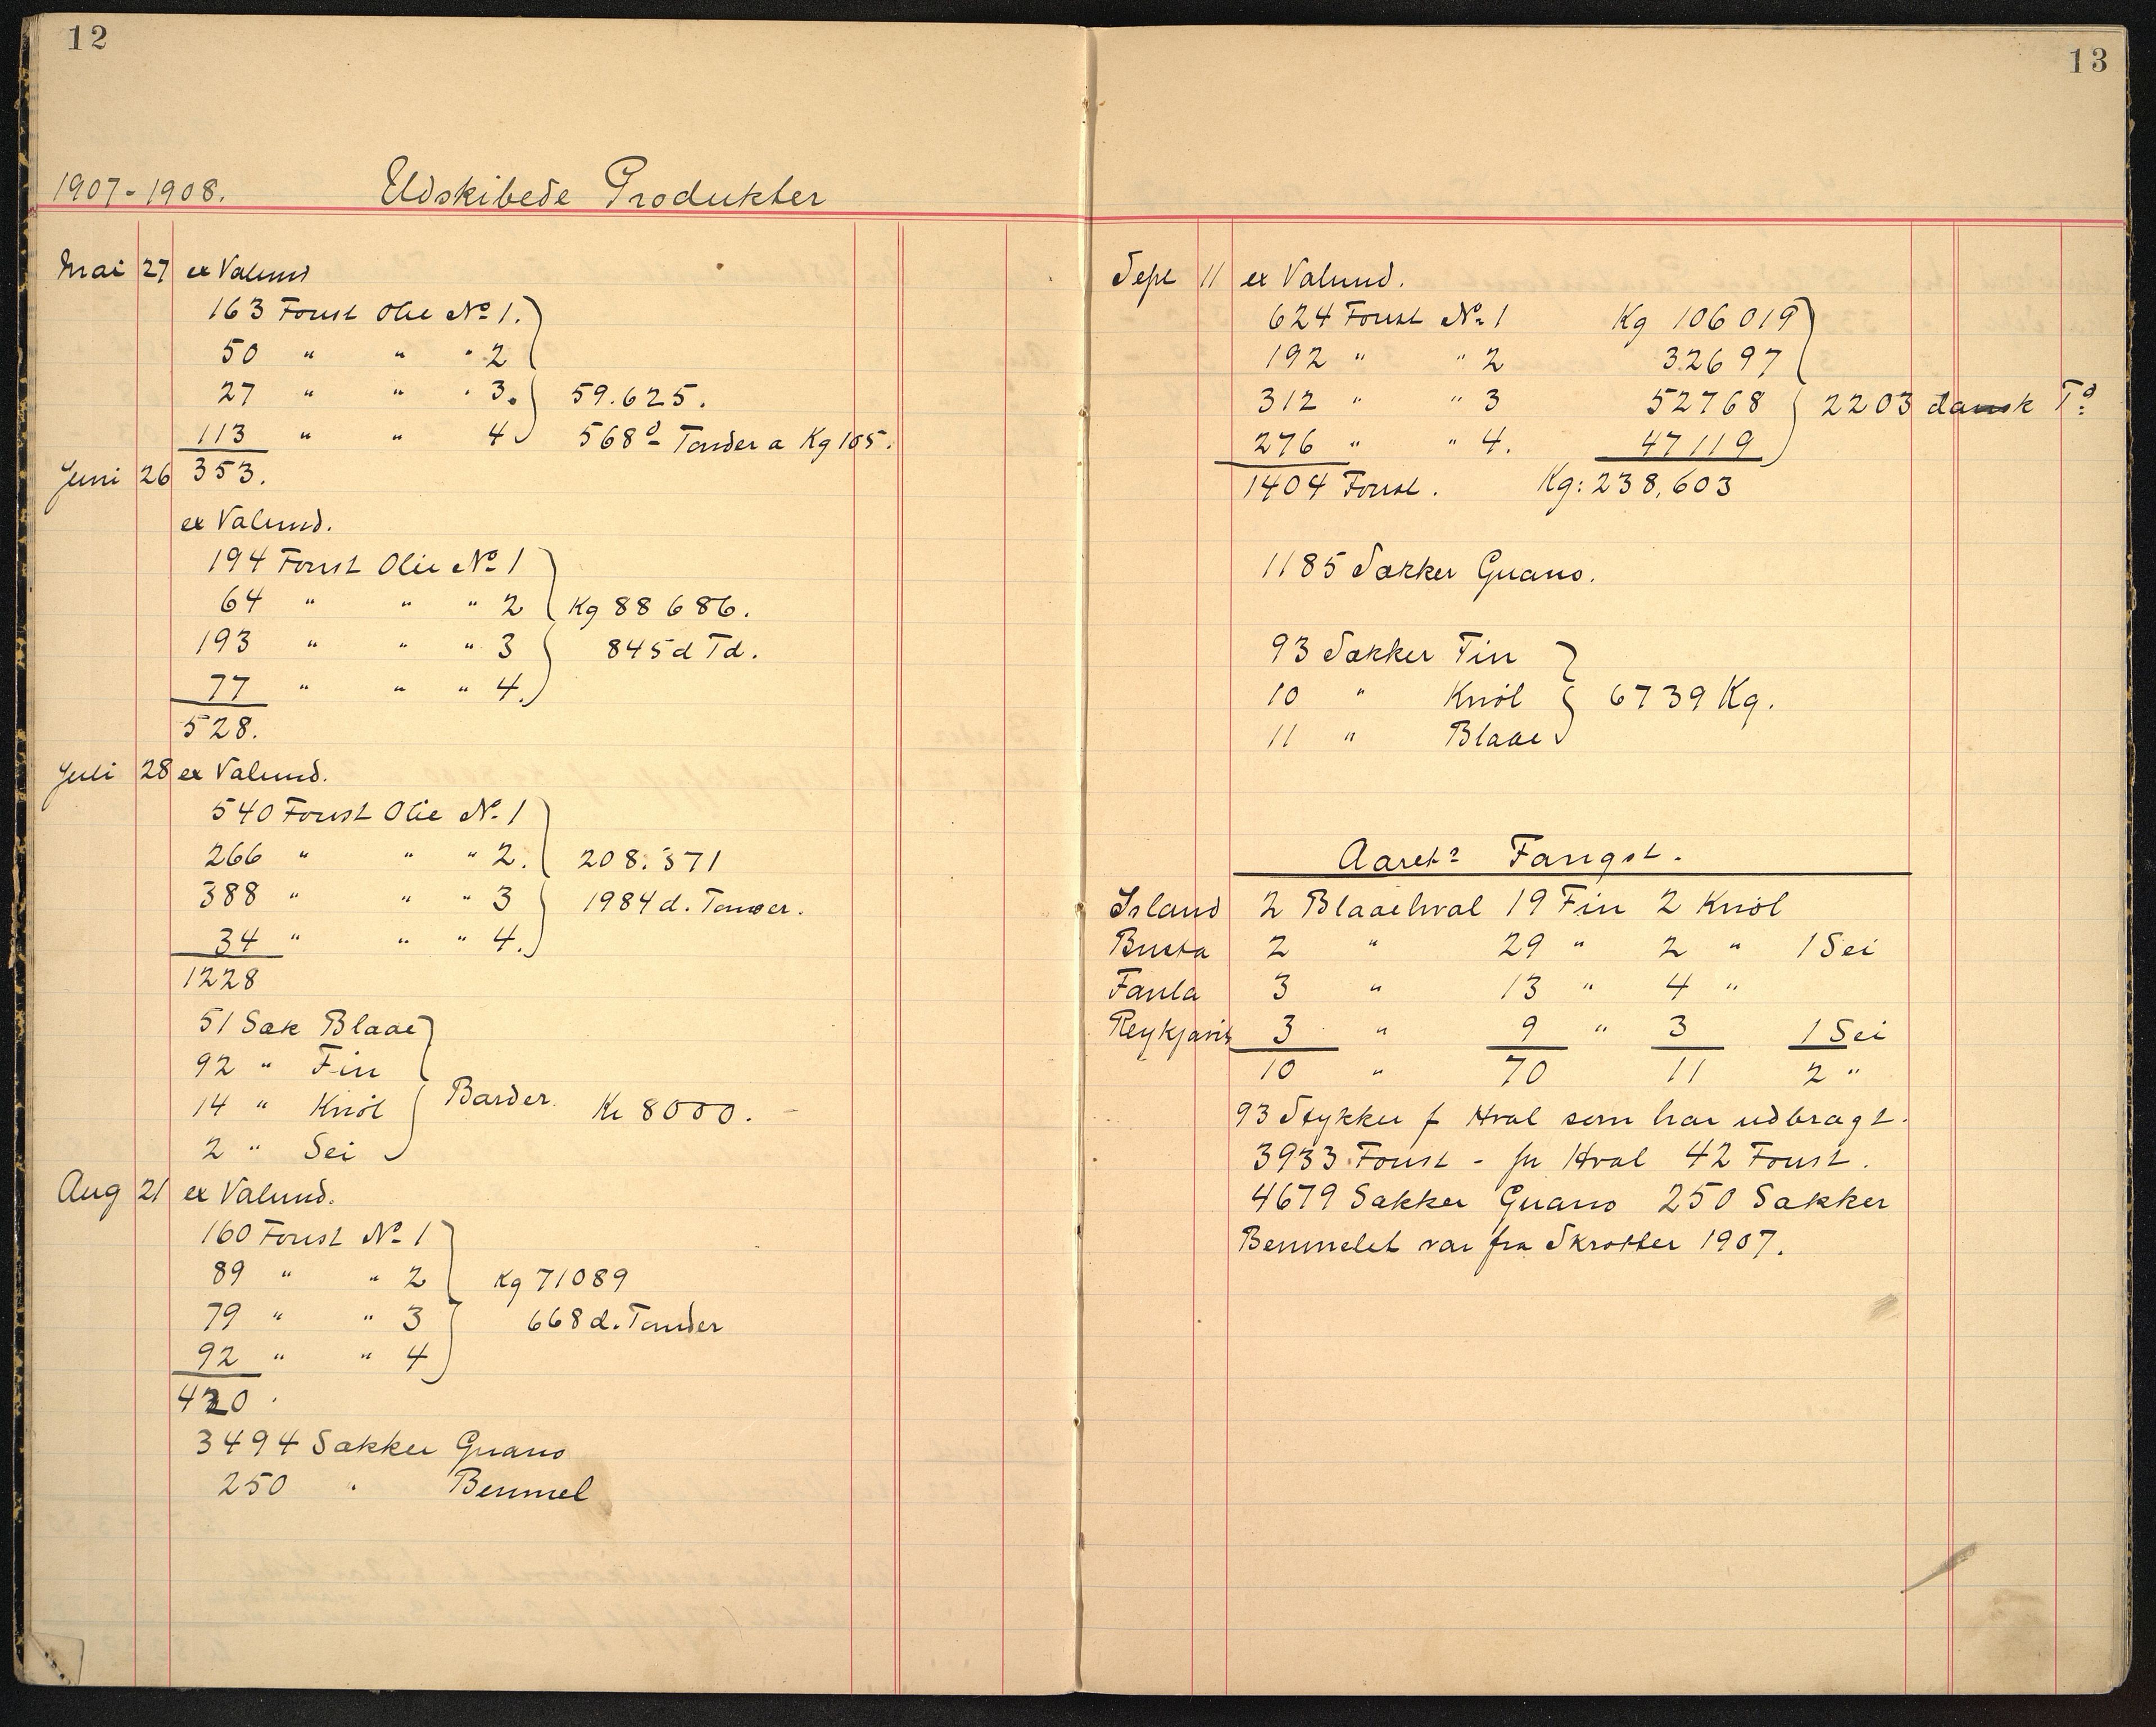 12
1907-1908. Udskibede Produkter
Mai 27 ex Valund
163 Foust Olie No 1.
50 " " " 2
27 " " " 3. 59.625.
113 " " 4 568 d Tønder a Kg 105.
Juni 26 353.
ex Valund.
194 Foust Olie No 1
64 " " " 2 Kg 88 686.
193 " " " 3 845 d Td.
77 " " " 4.
528.
Juli 28 ex Valund.
540 Foust Olie No 1
266 " " " 2. 208.371
388 " " " 3 1984 d. Tønder.
34 " " " 4.
1228
51 Sæk Blaae
92 " Fin
14 " Knöl Barder. Kr 8000.
2 " Sei
Aug 21 ex Valund.
160 Foust No 1
89 " " 2 Kg 71089
79 " " 3 668 d. Tønder
92 " " 4
420.
3494 Sækker Guano
250 " Benmel
13
Sept 11 ex Valund.
624 Foust No 1 Kg 106 019
192 " " 2 32697
312 " " 3 52768 2203 dansk Td
276 " " 4. 47119
1404 Foust. Kg: 238,603
1185 Sækker Guano.
93 Sækker Fin
10 " Knöl 6739 Kg.
11 " Blaae
Aarets Fangst.
Island 2 Blaaehval 19 Fin 2 Knöl
Busta 2 " 29 " 2 " 1 Sei
Faula 3 " 13 " 4 "
Reykjavik 3 " 9 " 3 1 Sei
10 " 70 11 2 "
93 Stykker f Hval som har udbragt.
3933 Foust - pr Hval 42 Foust.
4679 Sækker Guano 250 Sækker
Benmelet var fra Skrotter 1907.